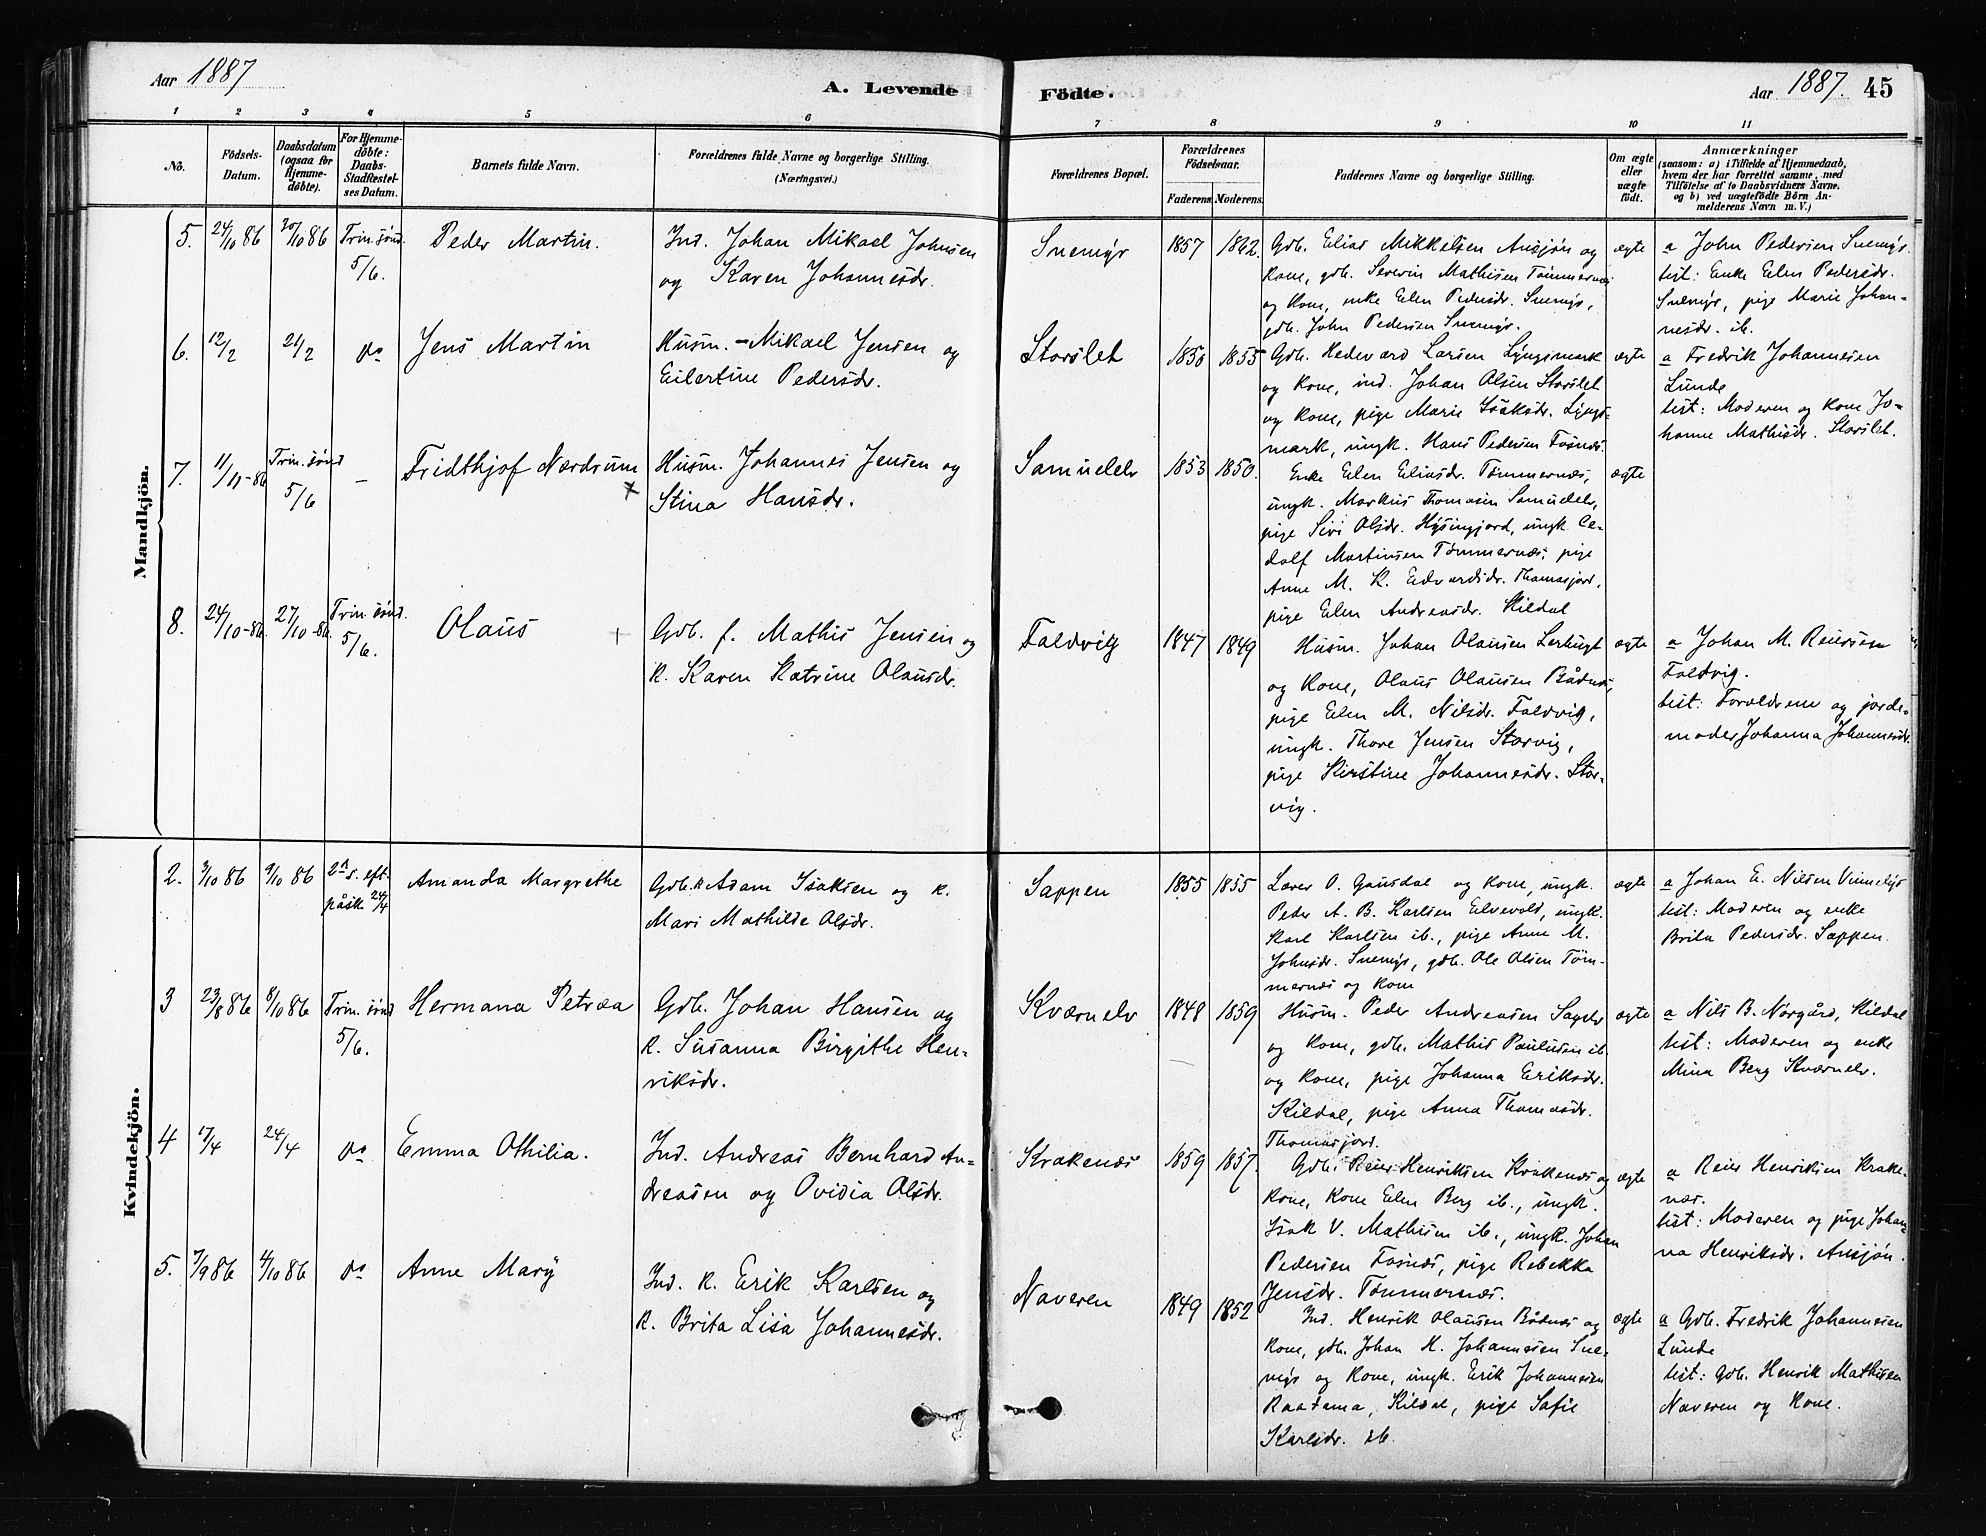 Aar 1887
A. Levende
Födte.
Aar 1887. 45
1 2 3 4 5 6 7 8 9 10 11
No.
Födsels-
Datum.
Daabsdatum
(ogsaa for
Hjemme-
döbte).
For Hjemme-
döbte:
Daabs-
Stadfæstel-
ses Datum.
Barnets fulde Navn.
Forældrenes fulde Navne og borgerlige Stilling.
(Næringsvei.)
Forældrenes Bopæl.
Forældrenes
Födselsaar.
Faderens. Moderens.
Faddernes Navne og borgerlige Stilling.
Om ægte
eller
uægte
födt.
Anmærkninger
(saasom: a) i Tilfælde af Hjemmedaab,
hvem der har forrettet samme, med
Tilföielse af to Daabsvidners Navne,
og b) ved uægtefödte Börn An-
melderens Navn m. V.)
Mandkjön.
5. 24/10 86 30/10 86 Trin. sønd.
5/6.
Peder Martin.
Ind. Johan Mikael Johnsen
og Karen Johannesdr.
Snemyr 1857 1822.
Gdb. Elias Mikkelsen Ansjøn og
kone, gdb. Severin Mathisen Tømmernes
og kone, enke Elen Pedersdr. Snemyr,
gdb. John Pedersen Snemyr.
ægte
a John Pedersen Snemyr.
test: Enke Elen Pedersdr.
Snemyr, pige Marie Johan-
nesdr. ib.
6. 12/2 21/2 do
Jens Martin
Husm. Mikael Jensen og
Eilertine Pedersdr.
Storslet 1850 1855
Gdb. Hedevard Larsen Lyngsmark
og kone, ind. Johan Olsen Storslet
og kone, pige Marie Isaksdr. Lyngs-
mark, ungk. Hans Pedersen Fosnes.
ægte
a Fredrik Johannesen
Lunde
test: Moderen og kone Jo-
hanne Mathisdr. Storslet.
7. 11/11-86 Trin. sønd
5/6 -
Fridthjof Nordrum
Husm. Johannes Jensen og
Stina Hansdr.
Samuelelv 1853 1850.
Enke Elen Eliasdr. Tømmernes,
ungk. Markus Thomasen Samuelelv,
pige Sivi Olsdr. Hysingjord, ungk. Ce-
dolf Martinsen Tømmernes, pige
Anne M. K. Edvardsdr. Thomasjord,
pige Elen Andreasdr. Kildal
ægte
8. 24/10-86. 27/10-86. Trin. sønd.
5/6.
Olaus
Gdb. f. Mathis Jensen og
k. Karen Katrine Olausdr.
Faldvig 1847 1849
Husm. Johan Olausen Lerbugt
og kone, Olaus Olausen Bådnes,
pige Elen M. Nilsdr. Faldvig,
ungk. Thore Jensen Storvig,
pige Kirstine Johannesdr. Stor-
vig.
ægte
a Johan M. Reiersen
Faldvig.
test: Forældrene og jorde-
moder Johanna Johannesdr.
Kvindekjön.
2. 3/10 86 9/10 86 2d s. eft.
påske 24/4
Amanda Margrethe
Gdb. k Adam Isaksen og k.
Mari Mathilde Olsdr.
Sappen 1855 1855
Lærer O. Gausdal og kone, ungk.
Peder A. B. Karlsen Elvevold, ungk.
Karl Karlsen ib., pige Anne M.
Johnsdr. Snemyr, gdb. Ole Olsen Tøm-
mernes og kone
ægte
a Johan E. Nilsen Vinnelys
test: Moderen og enke
Brita Pedersdr. Sappen.
3 23/8 86 8/10 86 Trin. sønd
5/6.
Hermana Petræa
Gdb. Johan Hansen og
k. Susanna Birgithe Hen-
riksdr.
Kværnelv 1848 1859
Husm. Peder Andreasen Sagelv
og kone, gdb. Mathis Paulusen ib.
og kone, pige Johanna Eriksdr.
Kildal, pige Anna Thomasdr.
Thomasjord.
ægte
a Nils B. Norgård, Kildal
test: Moderen og enke
Mina Berg Kværnelv.
4 17/4 24/4 do
Emma Othilia.
Ind. Andreas Bernhard An-
dreasen og Ovidia Olsdr.
Krakenæs 1859 1857.
Gdb. Reier Henriksen Krakenæs og
kone, kone Elen Berg ib., ungk.
Isak V. Mathisen ib., ungk. Johan
Pedersen Fosnes, pige Rebekka
Jensdr. Tømmernes.
ægte
a Reier Henriksen Krake-
næs.
test: Moderen og pige Johan-
na Henriksdr. Ansjøn.
5. 7/9 86 4/10 86 do
Anne Mary
Ind. k. Erik Karlsen og
k. Brita Lisa Johannesdr.
Naveren 1849 1852
Ind. Henrik Olausen Bådnes og
kone, gdb. Johan H. Johannesen Sne-
myr og kone, ungk. Erik Johannesen
Raatama, Kildal, pige Sofie
Karlsdr. ib.
ægte
a Gdb. Fredrik Johannesen
Lunde
test: Gdb. Henrik Mathisen
Naveren og kone.